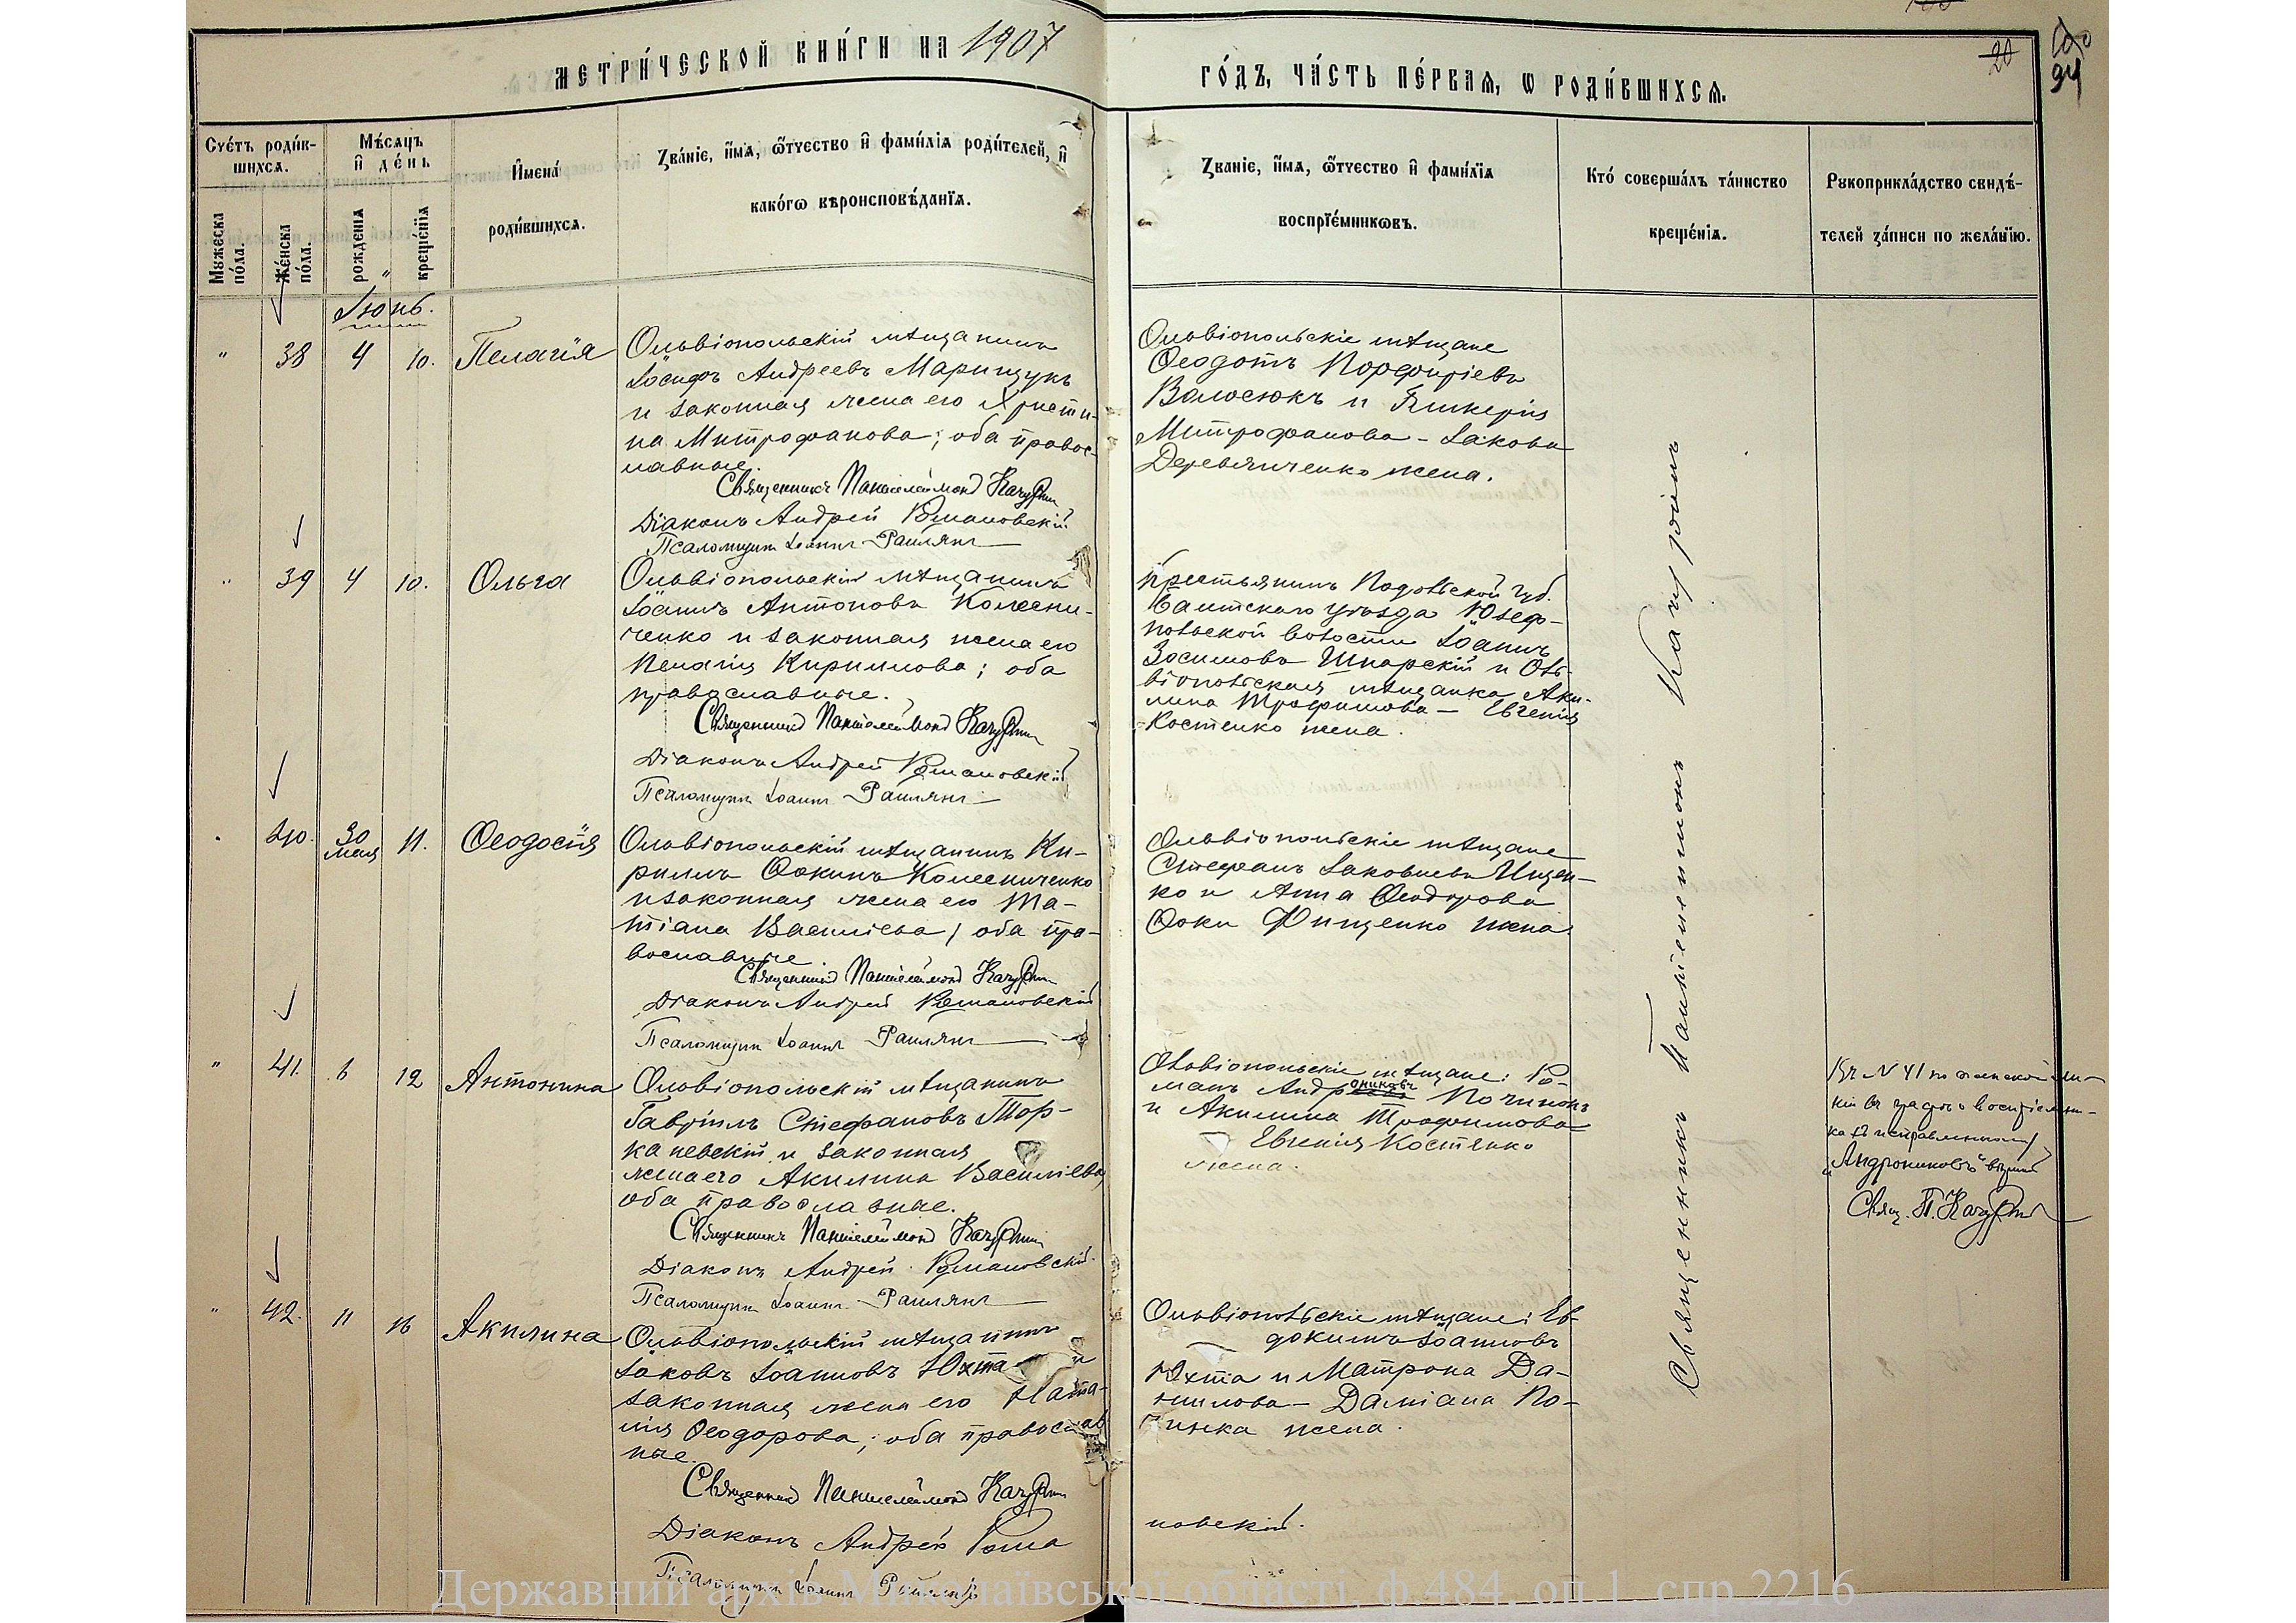 МЕТРИ́ЧЕСКОЙ КНИ́ГИ НА 1907
ГО́ДЪ, ЧА́СТЬ ПЕ́РВАѦ, Ѡ РОДИ́ВШИХСѦ.
20
94
Сче́тъ роди́в-
шихсѧ.
Мѣ́сѧцъ
и҆ де́нь
И҆мена́
роди́вшихсѧ.
Зва́нїе, и҆́мѧ, ѻ҆́тчество и҆ фами́лїѧ роди́телей, и҆
како́гѡ вѣроисповѣ́данїѧ.
Зва́нїе, и҆́мѧ, ѻ҆́тчество и҆ фами́лїѧ
воспрїе́мникѡвъ.
Кто́ соверша́лъ та́инство
креще́нїѧ.
Рꙋкоприкла́дство свидѣ́-
телей за́писи по жела́нїю.
Мꙋжеска
по́ла.
Же́нска
по́ла.
рожденїѧ
креще́нїѧ
Іюнь.
" 38 4 10. Пелагія
Ольвіопольскій мѣщанинъ
Іосифъ Андреевъ Марищукъ
и законная жена его Христи-
на Митрофанова; оба правос-
лавные.
Священникъ Пантелеимонъ
Діаконъ Андрей Романовскій
Псаломщик Іоаннъ Раилянъ
Ольвіопольскіе мѣщане
Ѳеодотъ Порфиріевъ
Волосюкъ и Гликерія
Митрофанова - Іакова
Деревянченко жена.
" 39 4 10. Ольга
Ольвіопольскій мѣщанинъ
Іоаннъ Антоновъ Колесни-
ченко и законная жена его
Пелагія Кириллова; оба
православные.
Священникъ Пантелеимонъ
Діаконъ Андрей Романовскій
Псаломщик Іоаннъ Раилянъ
Крестьянинъ Подольской губ.
Балтскаго уѣзда Юзеф-
польской волости Іоаннъ
Зосимовъ Шпарскій и Оль-
віопольская мѣщанка Аки-
лина Трофимова - Евгенія
Костенко жена.
" 40. 30 мая 11. Ѳеодосія
Ольвіопольскій мѣщанинъ Ки-
риллъ Ѳокинъ Колесниченко
и законная жена его Та-
тіана Василіева; оба пра-
вославные.
Священникъ Пантелеимонъ
Діаконъ Андрей Романовскій
Псаломщик Іоаннъ Раилянъ
Ольвіопольскіе мѣщане
Стефанъ Іаковлевъ Ищен-
ко и Анна Ѳеодорова
Ѳоки Фищенко жена.
" 41. 6 12 Антонина
Ольвіопольскій мѣщанинъ
Гавріилъ Стефановъ Тор-
каневскій и законная
жена его Акилина Василіева,
оба православные.
Священникъ Пантелеимонъ
Діаконъ Андрей Романовскій
Псаломщик Іоаннъ Раилянъ
Ольвіопольскіе мѣщане: Ро-
манъ Андрониковъ Починокъ
и Акилина Трофимова
Евгенія Костенко
жена.
Въ № 41 по женской ли-
ніи въ графѣ о воспріемни-
кахъ исправленному
"Андрониковъ" вѣрить
Свящ. П.
" 42. 11 16 Акилина
Ольвіопольскій мѣщанинъ
Іаковъ Іоанновъ Юхта и
законная жена его Ната-
лія Ѳеодорова; оба православ
ные.
Священникъ Пантелеимонъ
Діаконъ Андрей Рома
новскій.
Псаломщик Іоаннъ Раилянъ
Ольвіопольскіе мѣщане: Ев-
докимъ Іоанновъ
Юхта и Матрона Да-
ниилова - Даміана По-
чинка жена.
Священникъ Пантелеимонъ
Державний архів Миколаївської області, ф.484, оп.1, спр.2216